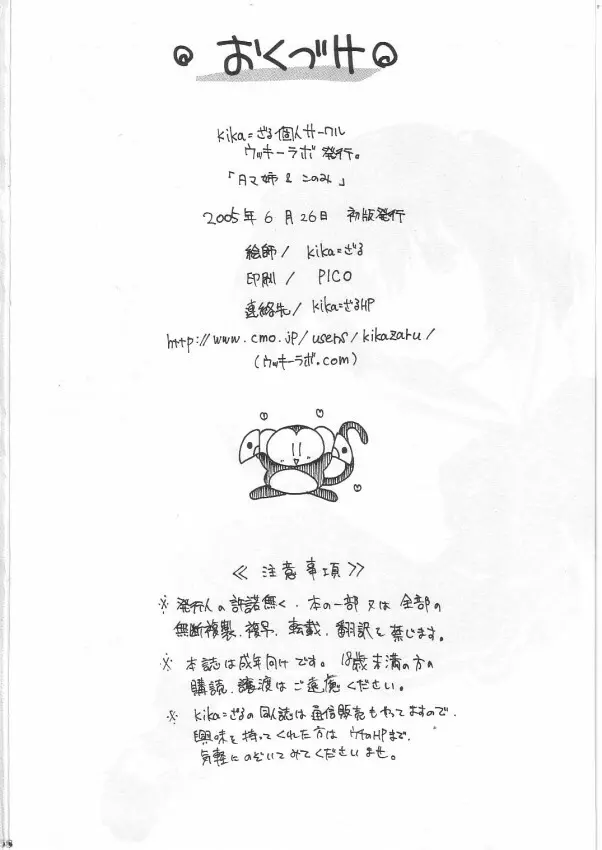 おくづけ
kika=ざる個人サークル
ウッキーラボ 発行。
「タマ姉 & このみ」
2005年 6月 26日 初版発行
絵師 / kika=ざる
印刷 / PICO
連絡先 / kika=ざるHP
http://www.cmo.jp/users/kikazaru/
(ウッキーラボ.com)
《 注意事項 》
※ 発行人の許諾無く、本の一部又は全部の
無断複製、複写、転載、翻訳を禁じます。
※ 本誌は成年向けです。18歳未満の方の
購読、譲渡はご遠慮ください。
※ kika=ざるの同人誌は通信販売もやってますので、
興味を持ってくれた方は ウチのHPまで、
気軽にのぞいてみてくださいませ。